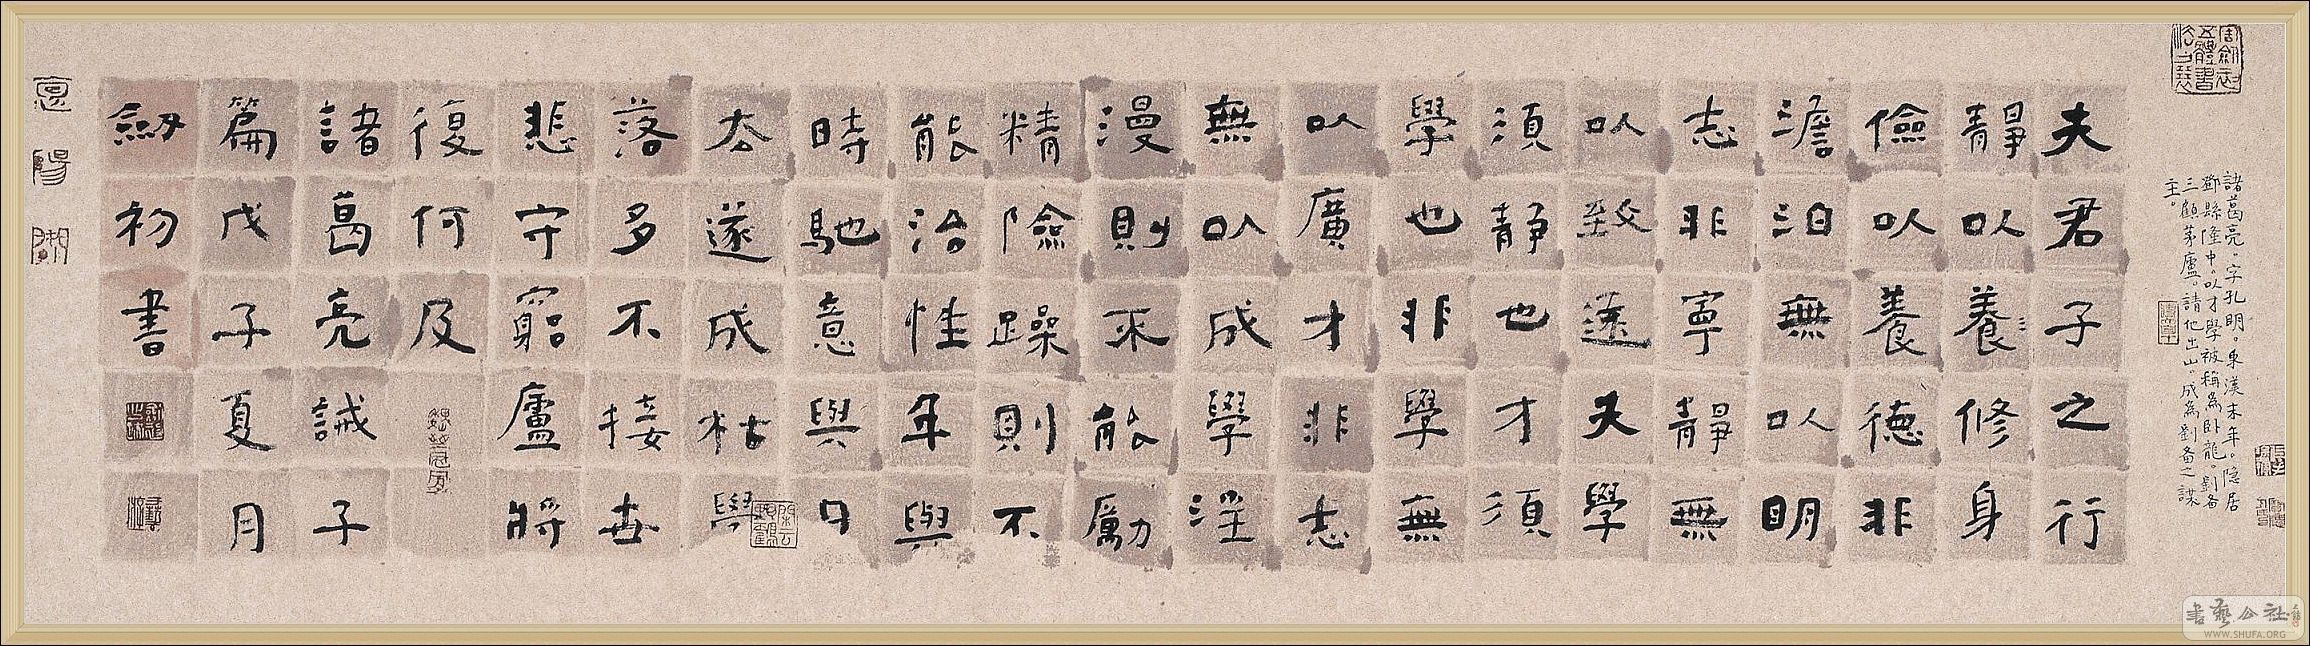 諸葛亮。字孔明。東漢末年。隱居
鄧縣隆中。以才學被稱為臥龍。劉备
三顧茅廬。請他出山。成為劉备之謀
主。
夫君子之行
靜以養修身
儉以養德非
澹泊無以明
志非寧靜無
以致遠夫學
須靜也才須
學也非學無
以廣才非志
無以成學淫
漫則不能勵
精險躁則不
能治性年與
時馳意與日
去遂成枯學
落多不接世
悲守窮廬將
復何及
諸葛亮誡子
篇戊子夏月
劍初書
書藝公社
WWW.SHUFA.ORG